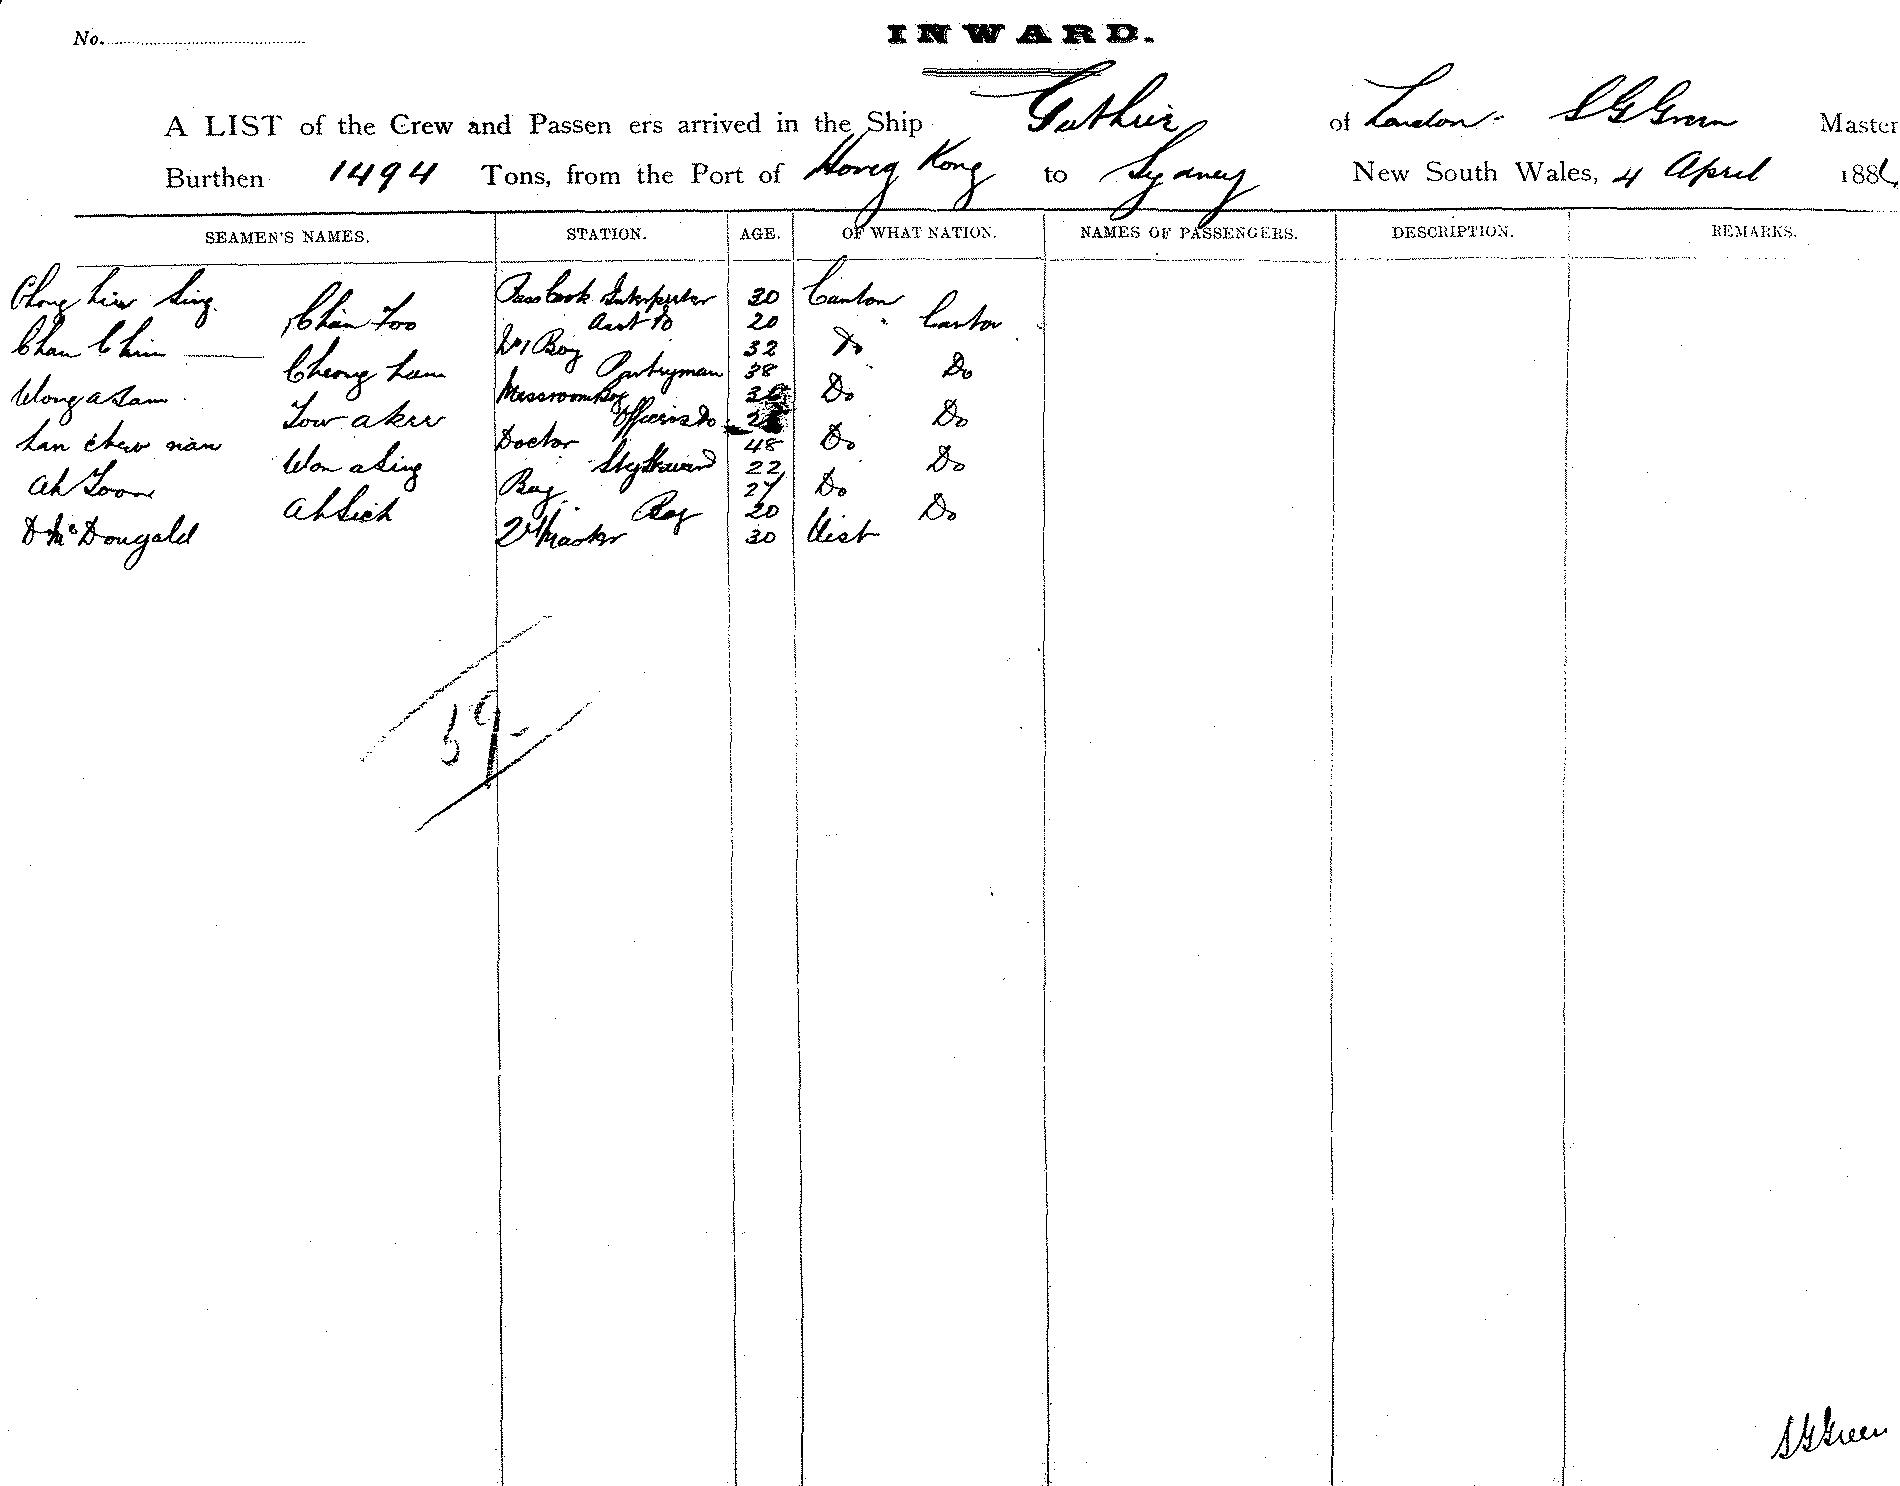 No.
INWARD.
A LIST of the Crew and Passen ers arrived in the Ship Guthrie of London. S G Green Master
Burthen 1494 Tons, from the Port of Hong Kong to Sydney New South Wales, 4 April 188
SEAMEN'S NAMES. STATION. AGE. OF WHAT NATION. NAMES OF PASSENGERS. DESCRIPTION. REMARKS.
Chong Sing Pass Cook Interpreter 30 Canton
Chan Foo Asst Do 20 " Canton
Chan Chin No 1 Boy 32 Do
Cheong Lam Pantryman 38 Do
Wong a Messroom Boy Do
Tow a Officers Do Do
Lan chew nan Doctor 48 Do
Won a Sing 22 Do
Ah Boy 27 Do
Ah Sich Boy 20 Do
D McDougald 30 Uist
59-
S G Green